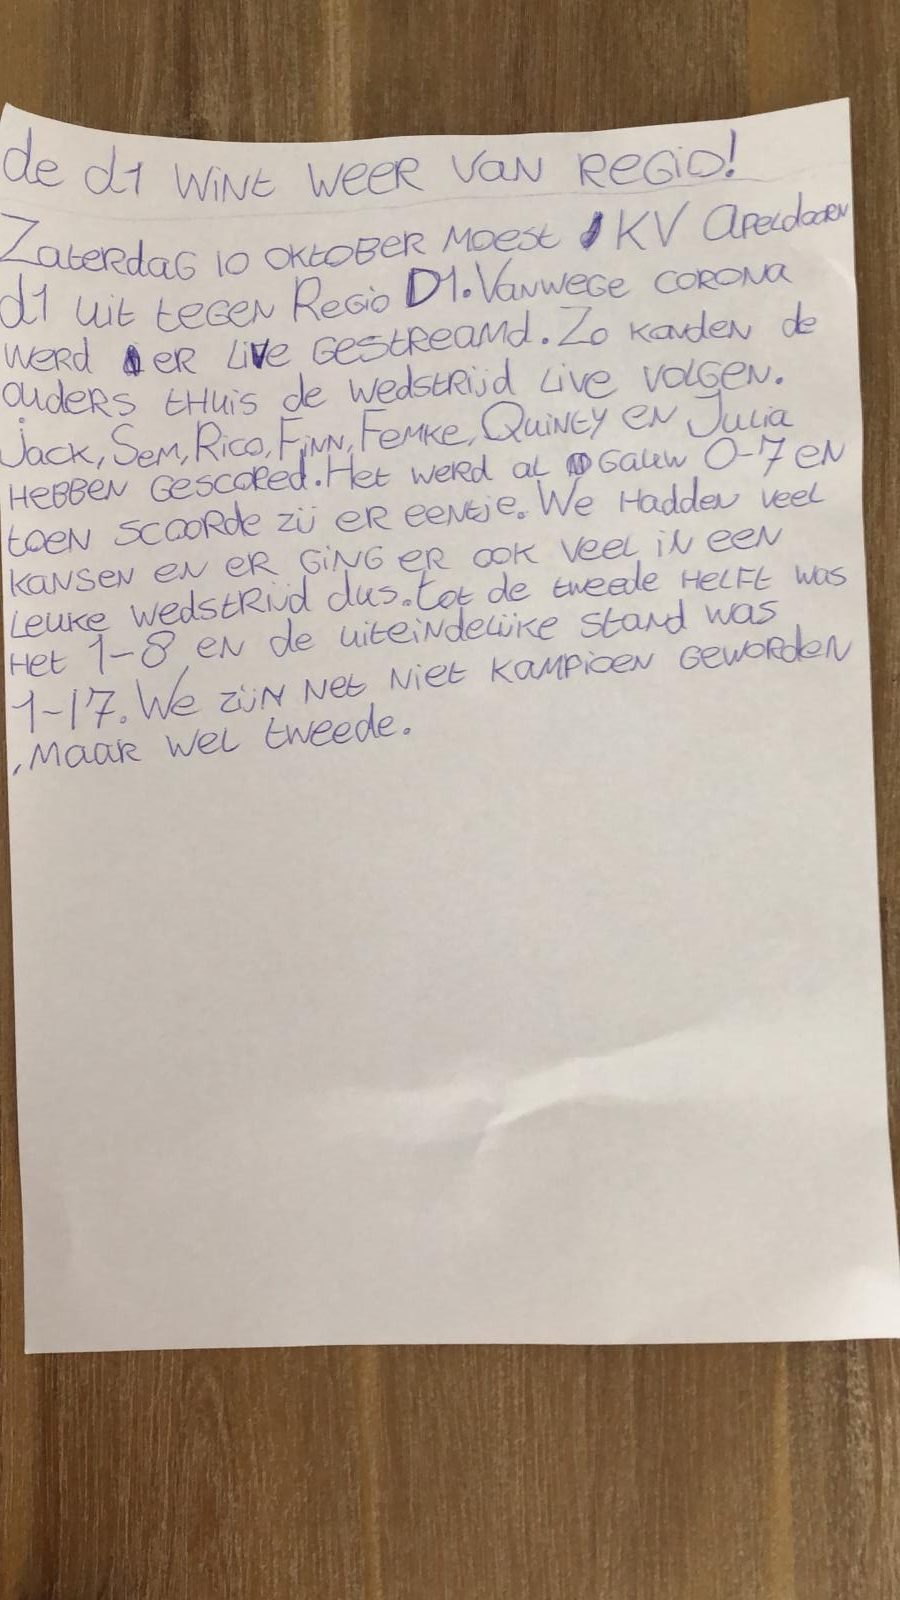 de d1 wint weer van Regio!
Zaterdag 10 oktober moest KV Apeldoorn
d1 uit tegen Regio D1. Vanwege corona
werd er live gestreamd. Zo konden de
ouders thuis de wedstrijd live volgen.
Jack, Sem, Rico, Finn, Femke, Quinty en Julia
hebben gescored. Het werd al gauw 0-7 en
toen scoorde zij er eentje. We hadden veel
kansen en er ging er ook veel in een
leuke wedstrijd dus. tot de tweede helft was
het 1-8 en de uiteindelijke stand was
1-17. We zijn net niet kampioen geworden
, maar wel tweede.